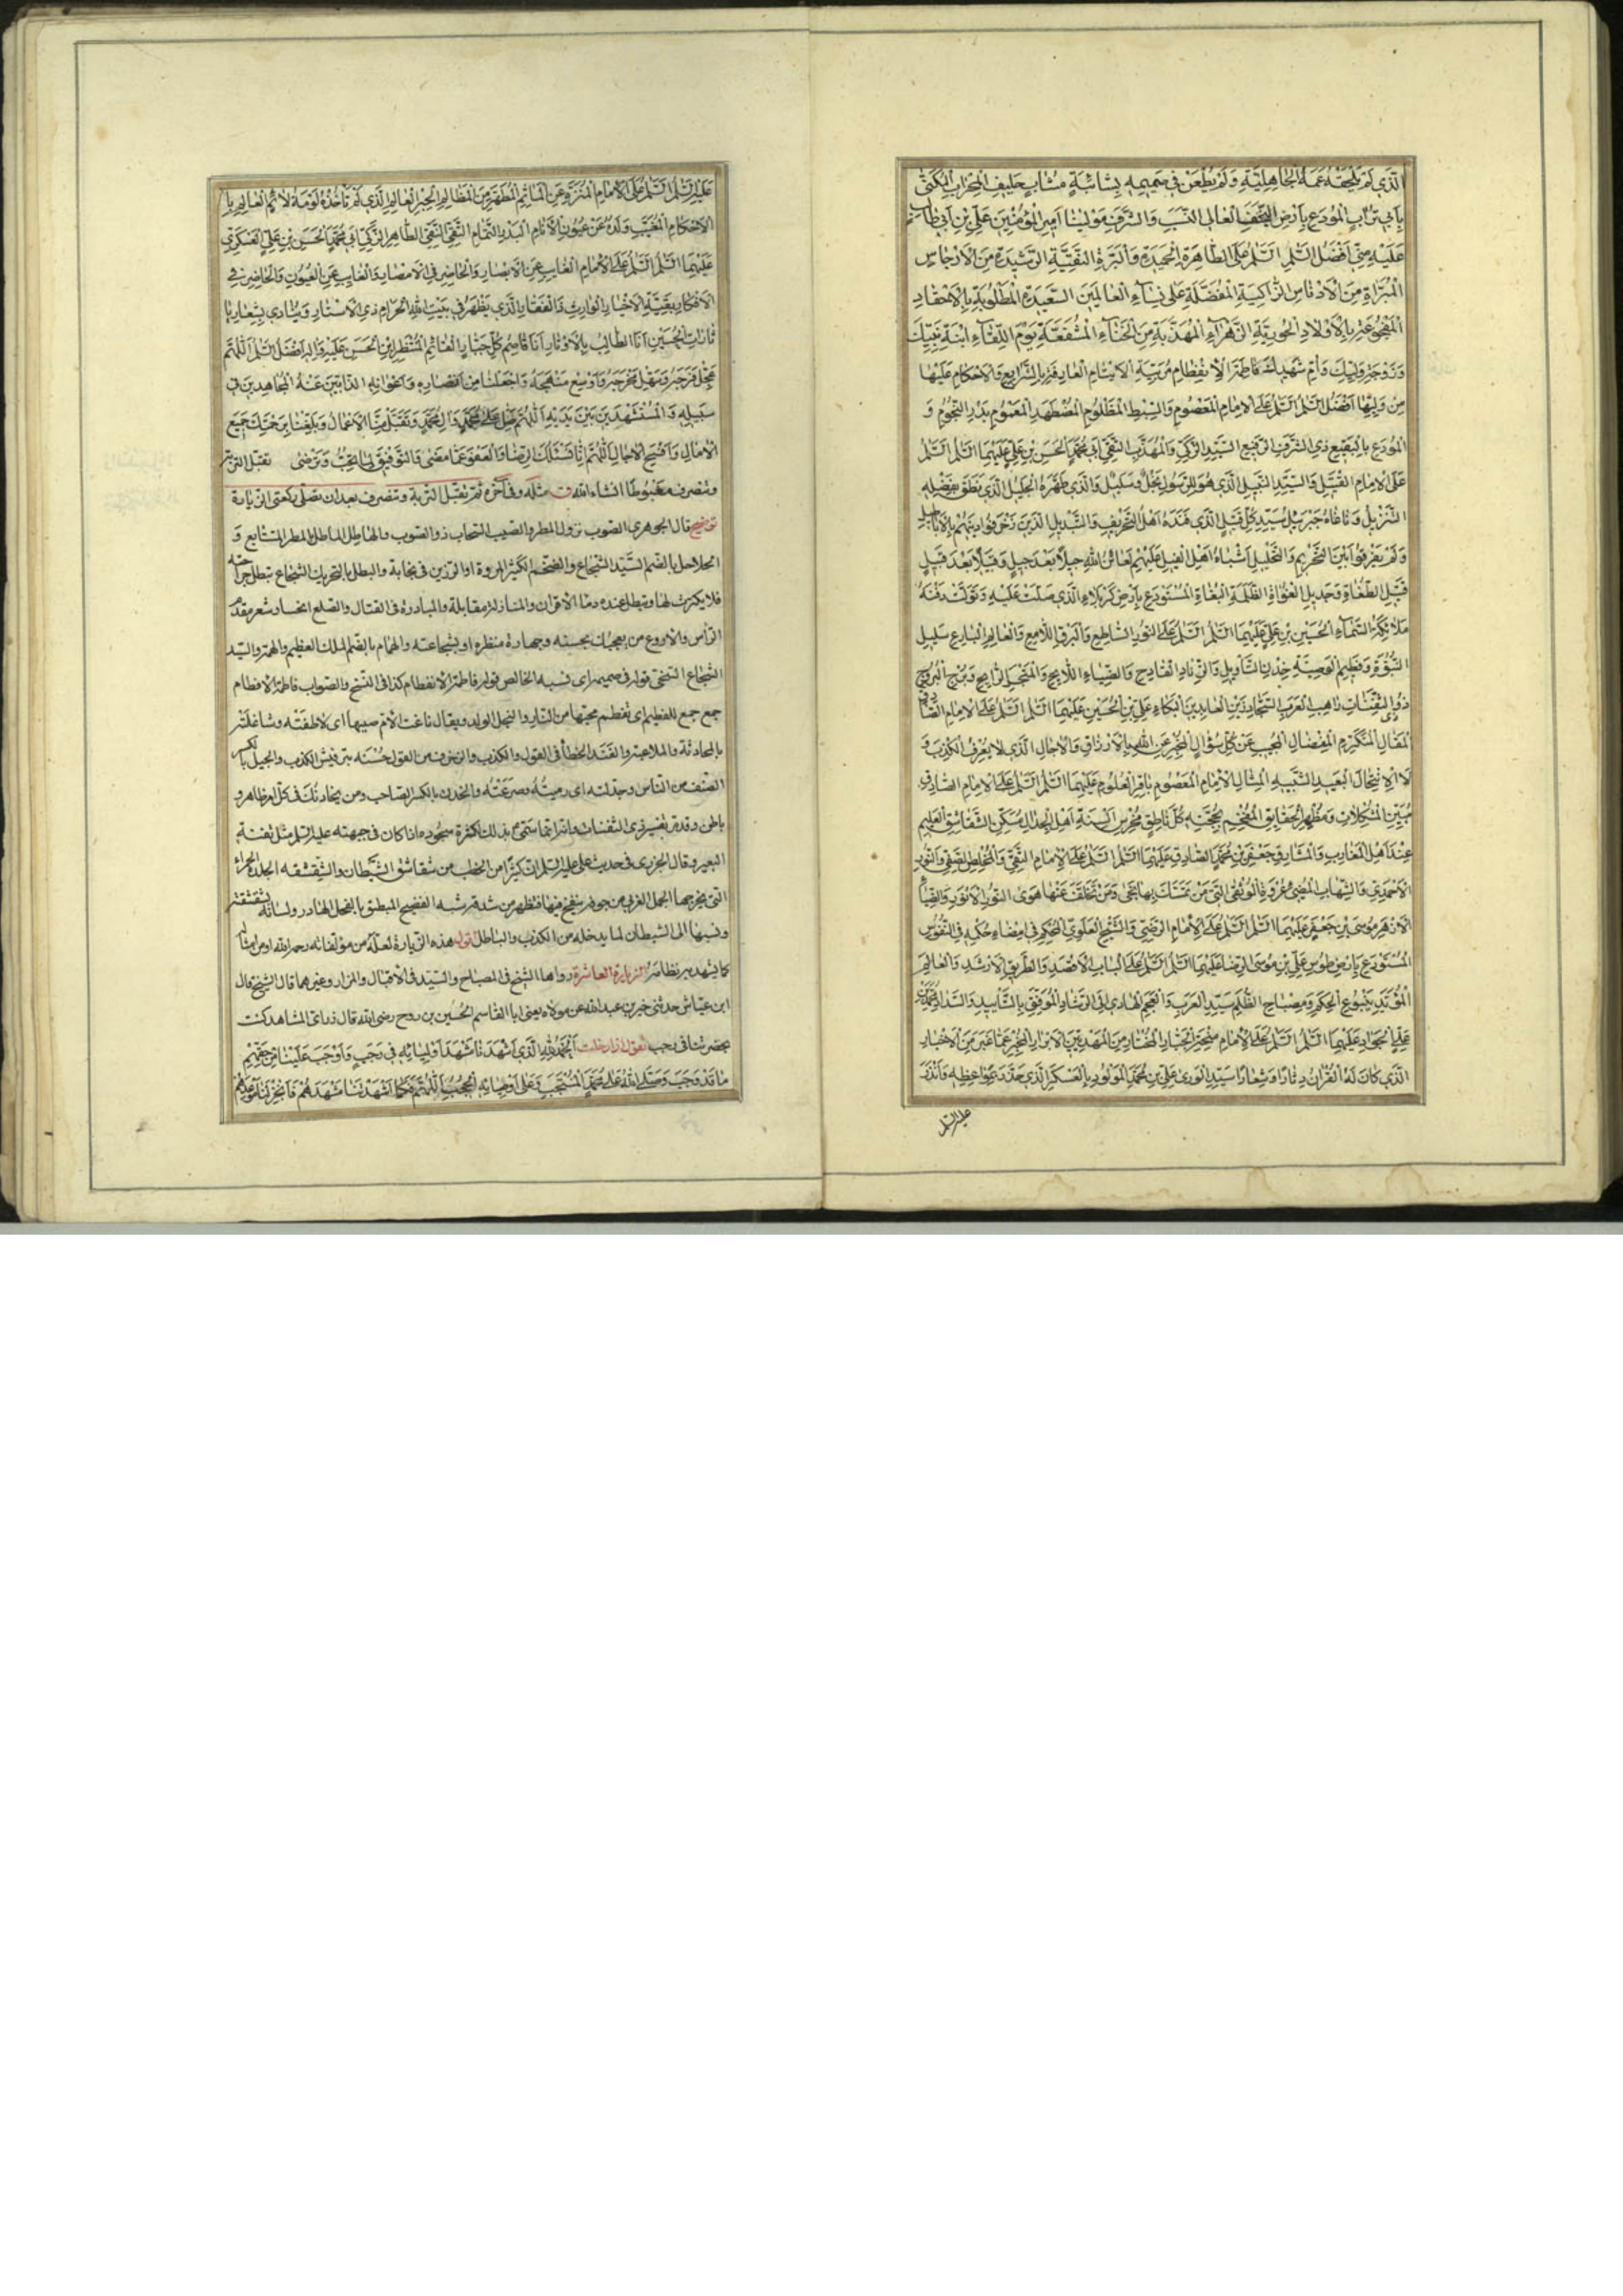 الَّذي لَمْ تَلْحَقْهُ عَمَهُ الجاهِلِيَّةِ وَلَمْ يُطْعَنْ في صَميمِهِ بِشائبَةٍ مُشابٍ حَليفِ المِحْرابِ المُكَنّى
بِأَبي تُرابٍ المُودَعِ بِأَرْضِ النَّجَفِ العالي النَّسَبِ وَالشَّرَفِ مَوْلينا أَميرِ المُؤْمِنينَ عَلِيِّ بْنِ أَبي طالِبٍ
عَلَيْهِ مِنّي أَفْضَلُ السَّلمِ السَّلمُ عَلَى الطّاهِرَةِ الحَميدَةِ وَالبَرَّةِ التَّقِيَّةِ الرَّشيدَةِ مِنَ الأَرْجاسِ
المُبَرّاةِ مِنَ الأَدْناسِ الزّاكِيَةِ المُفَضَّلَةِ عَلى نِساءِ العالَمينَ السَّعيدَةِ المَطْلُوبَةِ بِالأَحْقادِ
المَفْجُوعَةِ بِالأَوْلادِ الحُورِيَّةِ الزَّهْراءِ المُهَذَّبَةِ مِنَ الخَناءِ المُشَفَّعَةِ يَوْمَ اللِّقاءِ ابْنَةِ نَبِيِّكَ
وَزَوْجَةِ وَلِيِّكَ وَأُمِّ شَهيدِكَ فاطِمَةَ الاِنْفِطامِ مُرَبِّيَةِ الأَيْتامِ العارِفَةِ بِالشَّرايِعِ وَالأَحْكامِ عَلَيْها
مِنْ وَلِيِّها أَفْضَلُ السَّلمِ السَّلمُ عَلَى الإِمامِ المَعْصُومِ وَالسِّبْطِ المَظْلُومِ المُضْطَهَدِ المَغْمُومِ بَدْرِ النُّجُومِ وَ
المُودَعِ بِالبَقيعِ ذِي الشَّرَفِ الرَّفيعِ السَّيِّدِ الزَّكِيِّ وَالمُهَذَّبِ التَّقِيِّ أَبي مُحَمَّدٍ الحَسَنِ بْنِ عَلِيٍّ عَلَيْهِمَا السَّلمُ السَّلمُ
عَلَى الإِمامِ القَتيلِ وَالسَّيِّدِ النَّبيلِ الَّذي هُوَ لِلرَّسُولِ نَجْلٌ وَسَليلٌ وَالَّذي طَهَّرَهُ الجَليلُ الَّذي نَطَقَ بِفَضْلِهِ
التَّنْزيلُ وَناغاهُ جَبْرَئيلُ سَيِّدِ كُلِّ قَتيلٍ الَّذي فَنَّدَهُ أَهْلُ التَّحْريفِ وَالتَّبْديلِ الَّذينَ زَخْرَفُوا دينَهُمْ بِالأَباطيلِ
وَلَمْ يُفَرِّقُوا بَيْنَ التَّحْريمِ وَالتَّحْليلِ أَشْباهُ أَهْلِ الفيلِ عَلَيْهِمْ لَعائِنُ اللهِ جيلًا بَعْدَ جيلٍ وَقَبيلًا بَعْدَ قَبيلٍ
قَتيلِ الطُّغاةِ وَجَديلِ الغُواةِ الظَّلَمَةِ البُغاةِ المُسْتَوْدَعِ بِأَرْضِ كَرْبَلاءِ الَّذي صَلَّتْ عَلَيْهِ وَتَوَلَّتْ دَفْنَهُ
مَلائِكَةُ السَّماءِ الحُسَيْنِ بْنِ عَلِيٍّ عَلَيْهِمَا السَّلمُ السَّلمُ عَلَى النُّورِ السّاطِعِ وَالبَرْقِ اللّامِعِ وَالعالِمِ البارِعِ سَليلِ
النُّبُوَّةِ وَفَطيمِ الوَصِيَّةِ خِدْنِ التَّأْويلِ وَالزِّنادِ القادِحِ وَالضِّياءِ اللّايِحِ وَالمَتْجَرِ الرّابِحِ وَبُرْجِ البُرُوجِ
ذُو الثَّفِناتِ راهِبِ العَرَبِ السَّجّادِ زَيْنِ العابِدينَ البَكّاءِ عَلِيِّ بْنِ الحُسَيْنِ عَلَيْهِمَا السَّلمُ السَّلمُ عَلَى الإِمامِ الصّادِقِ
المَقالِ المُتَكَرِّمِ المِفْضالِ المُجيبِ عَنْ كُلِّ سُؤالٍ المُخْبِرِ عَنِ اللهِ بِالأَرْزاقِ وَالآجالِ الَّذي لا يَعْرِفُ الكَذِبَ وَ
لَا الاِنْتِحالَ البَعيدِ الشَّبيهِ المِثالِ الإِمامِ المَعْصُومِ باقِرِ العُلُومِ عَلَيْهِمَا السَّلمُ السَّلمُ عَلَى الإِمامِ الصّادِقِ
مُبَيِّنِ المُشْكِلاتِ وَمُظْهِرِ الحَقايِقِ المُفْحِمِ بِحُجَّتِهِ كُلَّ ناطِقٍ مُخْرِسِ أَلْسِنَةِ أَهْلِ الجِدالِ مُسَكِّنِ الشَّقاشِقِ العَليمِ
عِنْدَ أَهْلِ المَغارِبِ وَالمَشارِقِ جَعْفَرِ بْنِ مُحَمَّدٍ الصّادِقِ عَلَيْهِمَا السَّلمُ السَّلمُ عَلَى الإِمامِ التَّقِيِّ وَالمُخْلِصِ الصَّفِيِّ وَالنُّورِ
الأَحْمَدِيِّ وَالشِّهابِ المُضيءِ عُرْوَةِ الوُثْقَى الَّتي مَنْ تَمَسَّكَ بِها نَجى وَمَنْ تَخَلَّفَ عَنْها هَوى النُّورِ الأَنْوَرِ وَالضِّياءِ
الأَزْهَرِ مُوسَى بْنِ جَعْفَرٍ عَلَيْهِمَا السَّلمُ السَّلمُ عَلَى الإِمامِ الرَّضِيِّ وَالشَّيْخِ العَلَوِيِّ المُحَكَّمِ في إِمْضاءِ حُكْمِهِ فِي النُّفُوسِ
المُسْتَوْدَعِ بِأَرْضِ طُوسِ عَلِيِّ بْنِ مُوسَى الرِّضا عَلَيْهِمَا السَّلمُ السَّلمُ عَلَى البابِ الأَقْصَدِ وَالطَّريقِ الأَرْشَدِ وَالعالِمِ
المُؤَيَّدِ يَنْبُوعِ الحِكَمِ وَمِصْباحِ الظُّلَمِ سَيِّدِ العَرَبِ وَالعَجَمِ الهادي إِلَى الرَّشادِ المُوَفَّقِ بِالتَّأْييدِ وَالسَّدادِ مُحَمَّدِ بْنِ
عَلِيٍّ الجَوادِ عَلَيْهِمَا السَّلمُ السَّلمُ عَلَى الإِمامِ مِنْحَةِ الجَبّارِ المُخْتارِ مِنَ المَهْدِيّينَ الأَبْرارِ المُخْبِرِ عَمّا غَبَرَ مِنَ الأَخْبارِ
الَّذي كانَ لَهُ القُرْآنُ دِثارًا وَشِعارًا سَيِّدِ الوَرى عَلِيِّ بْنِ مُحَمَّدٍ المَوْلُودِ بِالعَسْكَرِ الَّذي حَذَّرَ بِمَواعِظِهِ وَأَنْذَرَ
عليه السلم
عَلَيْهِ السَّلمُ السَّلمُ عَلَى الإِمامِ المُنَزَّهِ عَنِ المَآثِمِ المُطَهَّرِ مِنَ المَظالِمِ الحِبْرِ العالِمِ الَّذي لَمْ تَأْخُذْهُ لَوْمَةُ لائِمٍ العالِمِ بِا
الأَحْكامِ المُغَيَّبِ وَلَدُهُ عَنْ عُيُونِ الأَنامِ البَدْرِ التَّمامِ التَّقِيِّ النَّقِيِّ الطّاهِرِ الزَّكِيِّ أَبي مُحَمَّدٍ الحَسَنِ بْنِ عَلِيٍّ العَسْكَرِيِّ
عَلَيْهِمَا السَّلمُ السَّلمُ عَلَى الإِمامِ الغايِبِ عَنِ الأَبْصارِ وَالحاضِرِ فِي الأَمْصارِ وَالغايِبِ عَنِ العُيُونِ وَالحاضِرِ في
الأَفْكارِ بَقِيَّةِ الأَخْيارِ الوارِثِ ذَا الفَقارِ الَّذي يَظْهَرُ في بَيْتِ اللهِ الحَرامِ ذِي الأَسْتارِ وَيُنادي بِشِعارِ يا
ثاراتِ الحُسَيْنِ أَنَا الطّالِبُ بِالأَوْتارِ أَنَا قاصِمُ كُلِّ جَبّارٍ القائِمِ المُنْتَظَرِ ابْنِ الحَسَنِ عَلَيْهِ وَآلِهِ أَفْضَلُ السَّلمِ اللّهُمَّ
عَجِّلْ فَرَجَهُ وَسَهِّلْ مَخْرَجَهُ وَأَوْسِعْ مَنْهَجَهُ وَاجْعَلْنا مِنْ أَنْصارِهِ وَأَعْوانِهِ الذّابّينَ عَنْهُ المُجاهِدينَ في
سَبيلِهِ وَالمُسْتَشْهَدينَ بَيْنَ يَدَيْهِ اللّهُمَّ صَلِّ عَلى مُحَمَّدٍ وَآلِ مُحَمَّدٍ وَتَقَبَّلْ مِنَّا الأَعْمالَ وَبَلِّغْنا بِرَحْمَتِكَ جَميعَ
الآمالِ وَأَفْسِحِ الآجالَ اللّهُمَّ إِنّا نَسْئَلُكَ الرِّضا وَالعَفْوَ عَمّا مَضى وَالتَّوْفيقَ لِما تُحِبُّ وَتَرْضى تقبّل التربة
وتنصرف مغبوطا انشاء الله ق مثله وفي آخره ثم تقبّل التربة وتنصرف بعد ان تصلّي ركعتي الزيارة
توضيح قال الجوهري الصوب نزول المطر والصيب السحاب ذو الصوب والهاطل المطر المتتابع و
الحلاحل بالضم السَّيّد الشجاع والضخم الكثير المروة او الرزين في نجابة والبطل بالتحريك الشجاع تبطل جراحته
فلا يكترث لها وتبطل عنده دماء الاقران والمنازلة مقابلة والمبادرة في القتال والصلع انحسار شعر مقدّم
الرّأس والاروع من يعجبك بحسنه وجهارة منظره او بشجاعته والهمام بالضم الملك العظيم الهمة والسيّد
الشجاع السخيّ قوله في صميمه اى نسبه الخالص قوله فاطمة الانفطام كذا في النسخ والصواب فاطمة الافطام
جمع جمع للفطيم اى تفطم محبّها من النار والنجل الولد ويقال ناغت الام صبيها اى لاطفته وشاغلته
بالمحادثة والملاعبة والفند الخطأ في القول والكذب والزخرف من القول حُسْنه بترقيش الكذب والجيل بالكسر
الصّنف من الناس وجدلته اى رميته وصرعته والخدن بالكسر الصاحب ومن يخادنك في كل امر ظاهر و
باطن وقد مرّ تفسير ذي الثفنات وانه انما سمّي بذلك لكثرة سجوده اذا كان في جبهته عليه السلم مثل ثفنة
البعير وقال الجزري في حديث علي عليه السلم انّ كثيرًا من الخطب من شقاشق الشيطان والشقشقه الجلدة الحمراء
التي يخرجها الجمل العربي من جوفه ينفخ فيها فتظهر من شدقه شبه الفصيح المنطيق بالفحل الهادر ولسانه بشقشقته
ونسبها الى الشيطان لما يدخله من الكذب والباطل قوله هذه الزيارة لعلّه من مؤلفاته رحمه الله او من امثاله
كما يشهد به نظامه الزيارة العاشرة رواها الشيخ في المصباح والسيّد في الاقبال والمزار وغيرهما قال الشيخ قال
ابن عيّاش حدثني خير بن عبد الله عن مولاه يعني ابا القاسم الحُسين بن روح رضي الله قال زر اىّ المشاهد كنت
بحضرتها في رجب تقول اذا دخلت اَلْحَمْدُ لِلّهِ الَّذي أَشْهَدَنا مَشْهَدَ أَوْلِيائِهِ في رَجَبٍ وَأَوْجَبَ عَلَيْنا مِنْ حَقِّهِمْ
ما قَدْ وَجَبَ وَصَلَّى اللهُ عَلى مُحَمَّدٍ المُنْتَجَبِ وَعَلى أَوْصِيائِهِ الحُجُبِ اللّهُمَّ فَكَما أَشْهَدْتَنا مَشْهَدَهُمْ فَأَنْجِزْ لَنا مَوْعِدَهُمْ